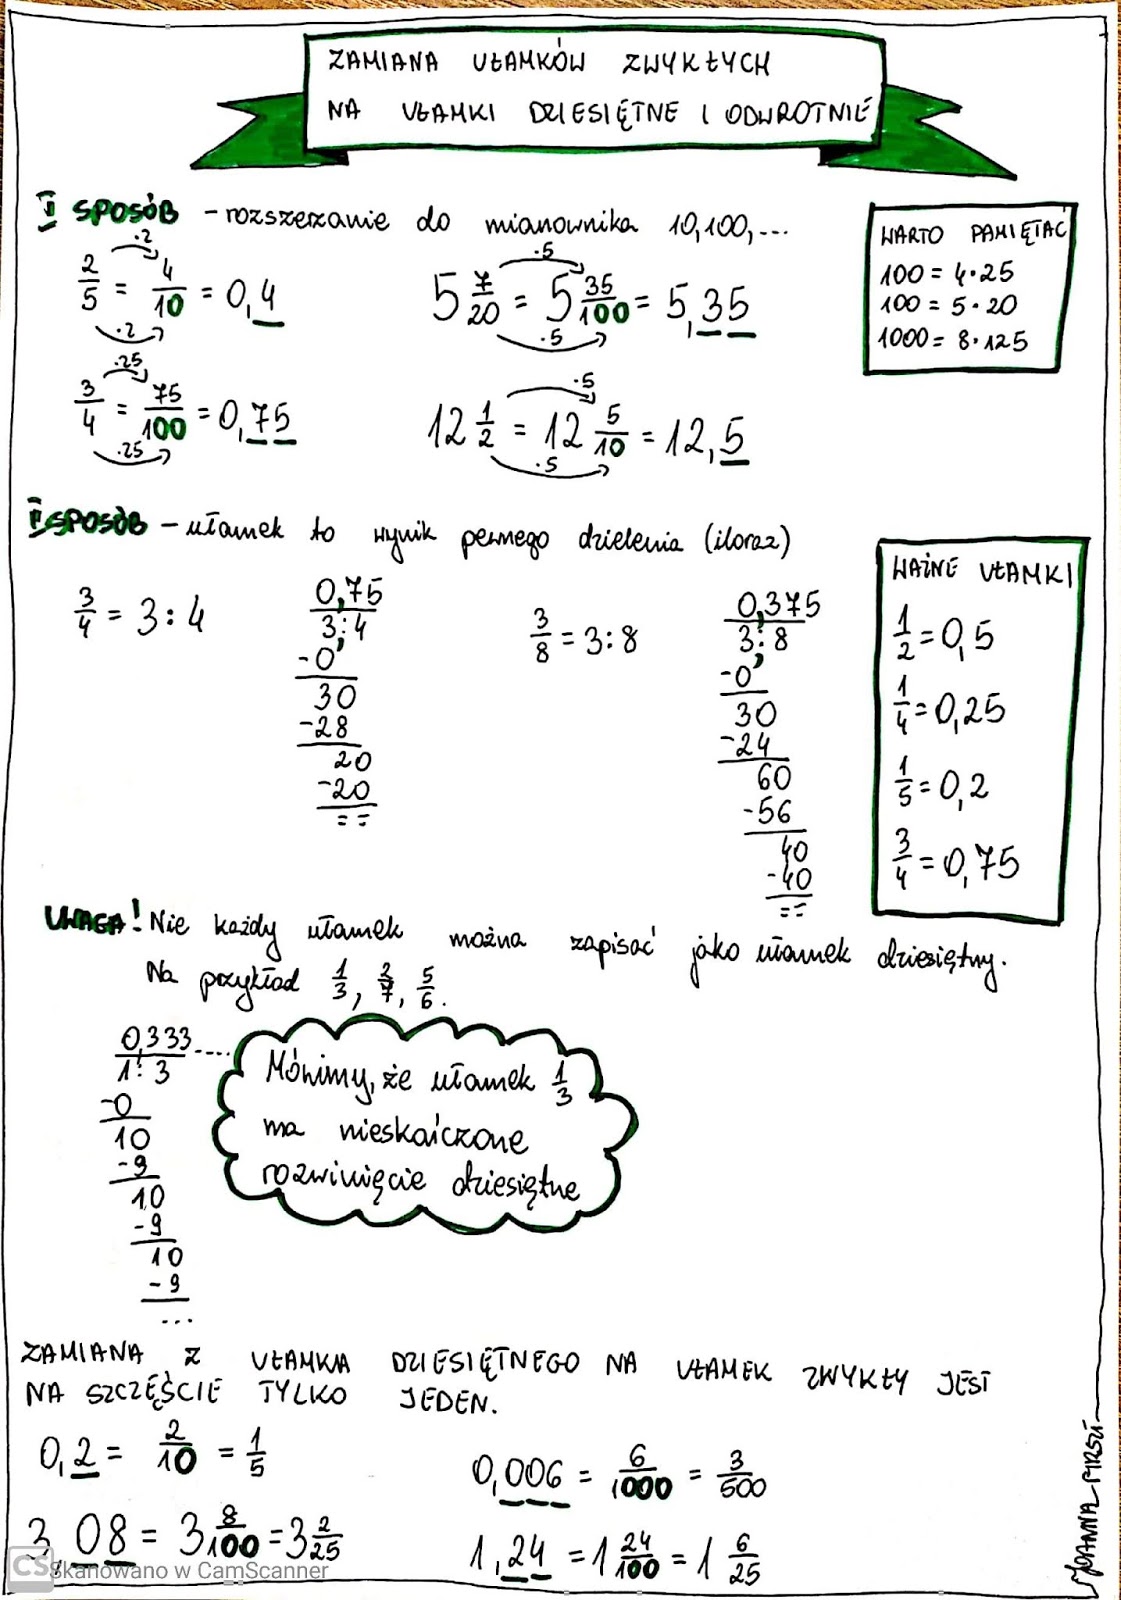 ZAMIANA UŁAMKÓW ZWYKŁYCH
NA UŁAMKI DZIESIĘTNE I ODWROTNIE
I SPOSÓB - rozszerzanie do mianownika 10, 100, ...
·2
2/5 = 4/10 = 0,4
·2
·5
5 7/20 = 5 35/100 = 5,35
·5
WARTO PAMIĘTAĆ
100 = 4·25
100 = 5·20
1000 = 8·125
·25
3/4 = 75/100 = 0,75
·25
·5
12 1/2 = 12 5/10 = 12,5
·5
II SPOSÓB - ułamek to wynik pewnego dzielenia (iloraz)
3/4 = 3 : 4
0,75
3 : 4
-0
30
-28
20
-20
= =
3/8 = 3 : 8
0,375
3 : 8
-0
30
-24
60
-56
40
-40
= =
WAŻNE UŁAMKI
1/2 = 0,5
1/4 = 0,25
1/5 = 0,2
3/4 = 0,75
UWAGA! Nie każdy ułamek można zapisać jako ułamek dziesiętny.
Na przykład 1/3, 2/7, 5/6.
0,333....
1 : 3
-0
10
-9
10
-9
10
-9
...
Mówimy, że ułamek 1/3
ma nieskończone
rozwinięcie dziesiętne
ZAMIANA Z UŁAMKA DZIESIĘTNEGO NA UŁAMEK ZWYKŁY JEST
NA SZCZĘŚCIE TYLKO JEDEN.
0,2 = 2/10 = 1/5
0,006 = 6/1000 = 3/500
3,08 = 3 8/100 = 3 2/25
1,24 = 1 24/100 = 1 6/25
CS Skanowano w CamScanner
JOANNA